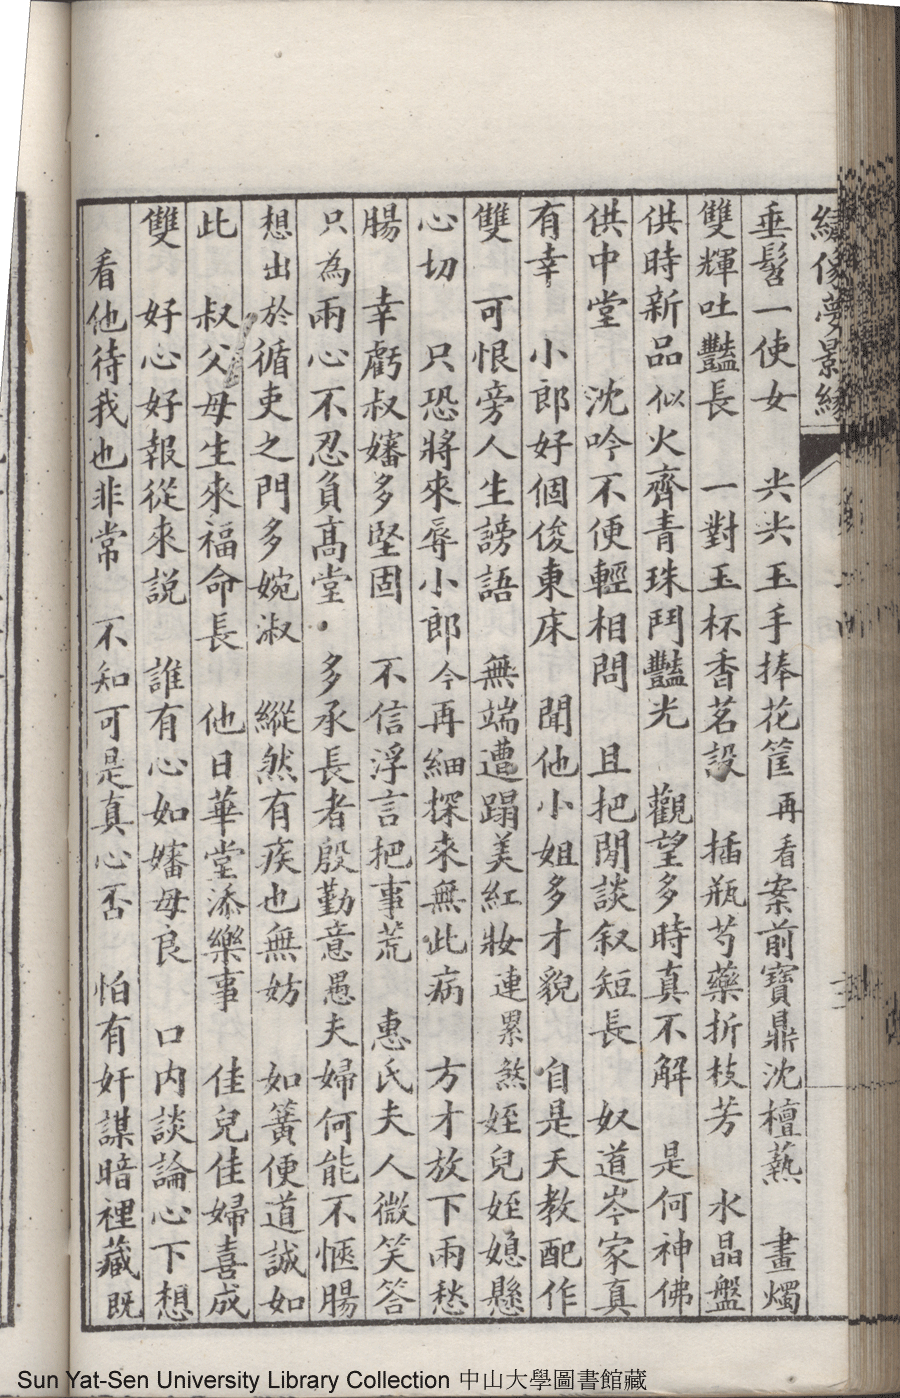 繡像夢影緣
垂髫一使女　尖尖玉手捧花筐再看案前寶鼎沈檀爇　畫燭
雙輝吐豔長　一對玉杯香茗設　插瓶芍藥折枝芳　水晶盤
供時新品似火齊青珠鬥豔光　觀望多時真不解　是何神佛
供中堂　沈吟不便輕相問　且把閒談叙短長　奴道岑家真
有幸　小郎好個俊東床　聞他小姐多才貌　自是天教配作
雙　可恨旁人生謗語　無端遭蹋美紅妝連累煞姪兒姪媳懸
心切　只恐將來辱小郎今再細探來無此病　方才放下兩愁
腸　幸虧叔嬸多堅固　不信浮言把事荒　惠氏夫人微笑答
只為兩心不忍負高堂．多承長者殷勤意愚夫婦何能不愜腸
想出於循吏之門多婉淑　縱然有疾也無妨　如簧便道誠如
此　叔父母生來福命長　他日華堂添樂事　佳兒佳婦喜成
雙　好心好報從來説　誰有心如嬸母良　口內談論心下想
看他待我也非常　不知可是真心否　怕有奸謀暗裡藏既
Sun Yat-Sen University Library Collection 中山大學圖書館藏